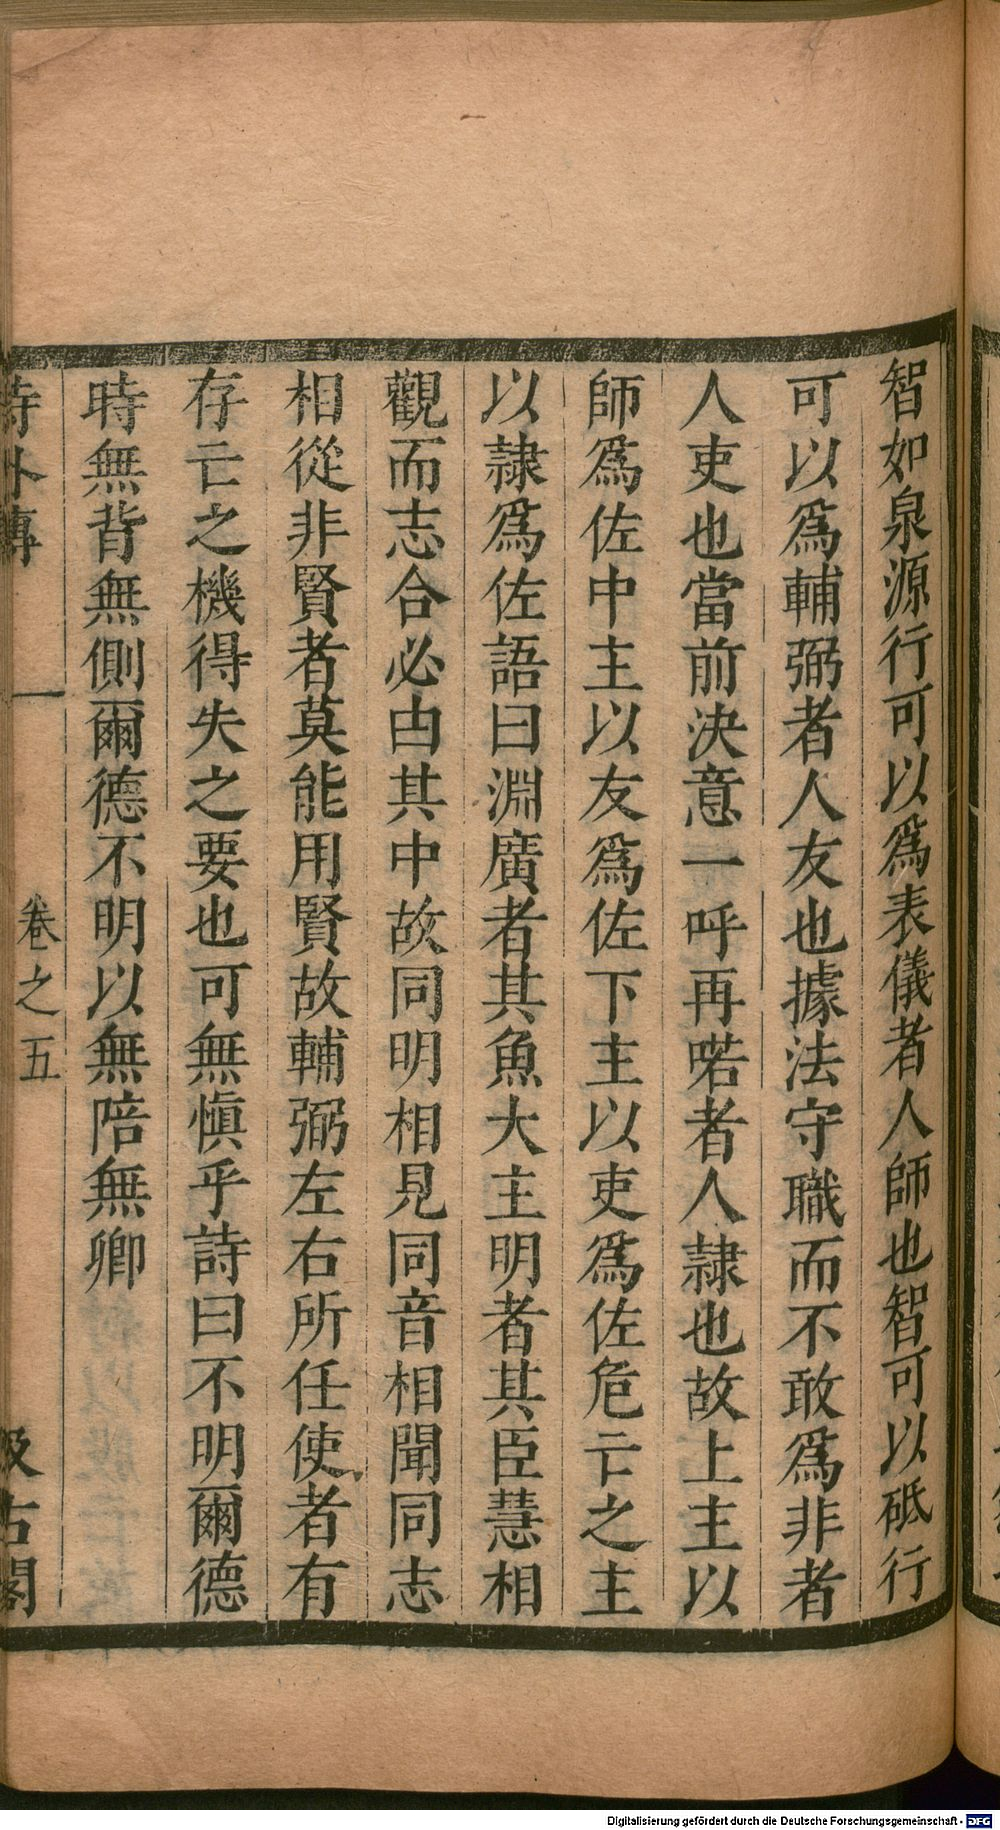 智如泉源行可以爲表儀者人師也智可以砥行
可以爲輔弼者人友也據法守職而不敢爲非者
人吏也當前決意一呼再喏者人隷也故上主以
師爲佐中主以友爲佐下主以吏爲佐危亡之主
以隷爲佐語曰淵廣者其魚大主明者其臣慧相
觀而志合必由其中故同明相見同音相聞同志
相從非賢者莫能用賢故輔弼左右所任使者有
存亡之機得失之要也可無愼乎詩曰不明爾德
時無背無側爾德不明以無陪無卿
詩外傳 卷之五 汲古閣
Digitalisierung gefördert durch die Deutsche Forschungsgemeinschaft - DFG